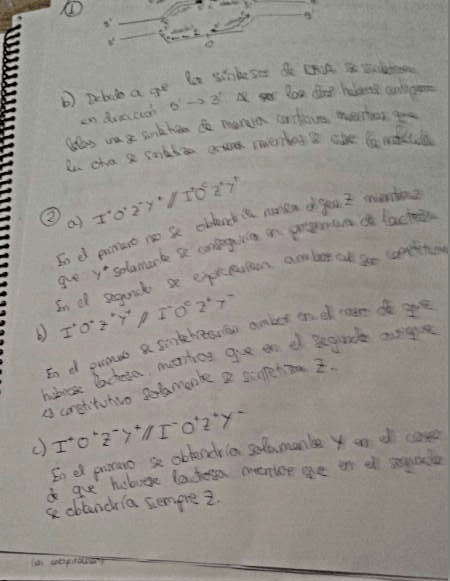 ①
b) Debido a que la síntesis de DNA se
en dirección 5' → 3' al ser las dos hebras
una se sintetiza de manera continua mientras que
la otra se sintetiza mientras se abre la molécula
② a) I⁺O⁺Z⁻Y⁺//I⁺OᶜZ⁺Y⁺
En el primero no se obtendría nunca el gen Z mientras
que Y⁺ solamente se conseguiría en presencia de lactosa
En el segundo se expresarían ambos al ser constitutivo
b) I⁺O⁺Z⁺Y⁺ // I⁻OᶜZ⁺Y⁻
En el primero se sintetizarían ambos en el caso de que
hubiese lactosa, mientras que en el segundo aunque
es constitutivo solamente se sintetiza Z.
c) I⁺O⁺Z⁻Y⁺//I⁻O⁺Z⁺Y⁻
En el primero se obtendría solamente Y en el caso
de que hubiese lactosa mientras que en el segundo
se obtendría siempre Z.